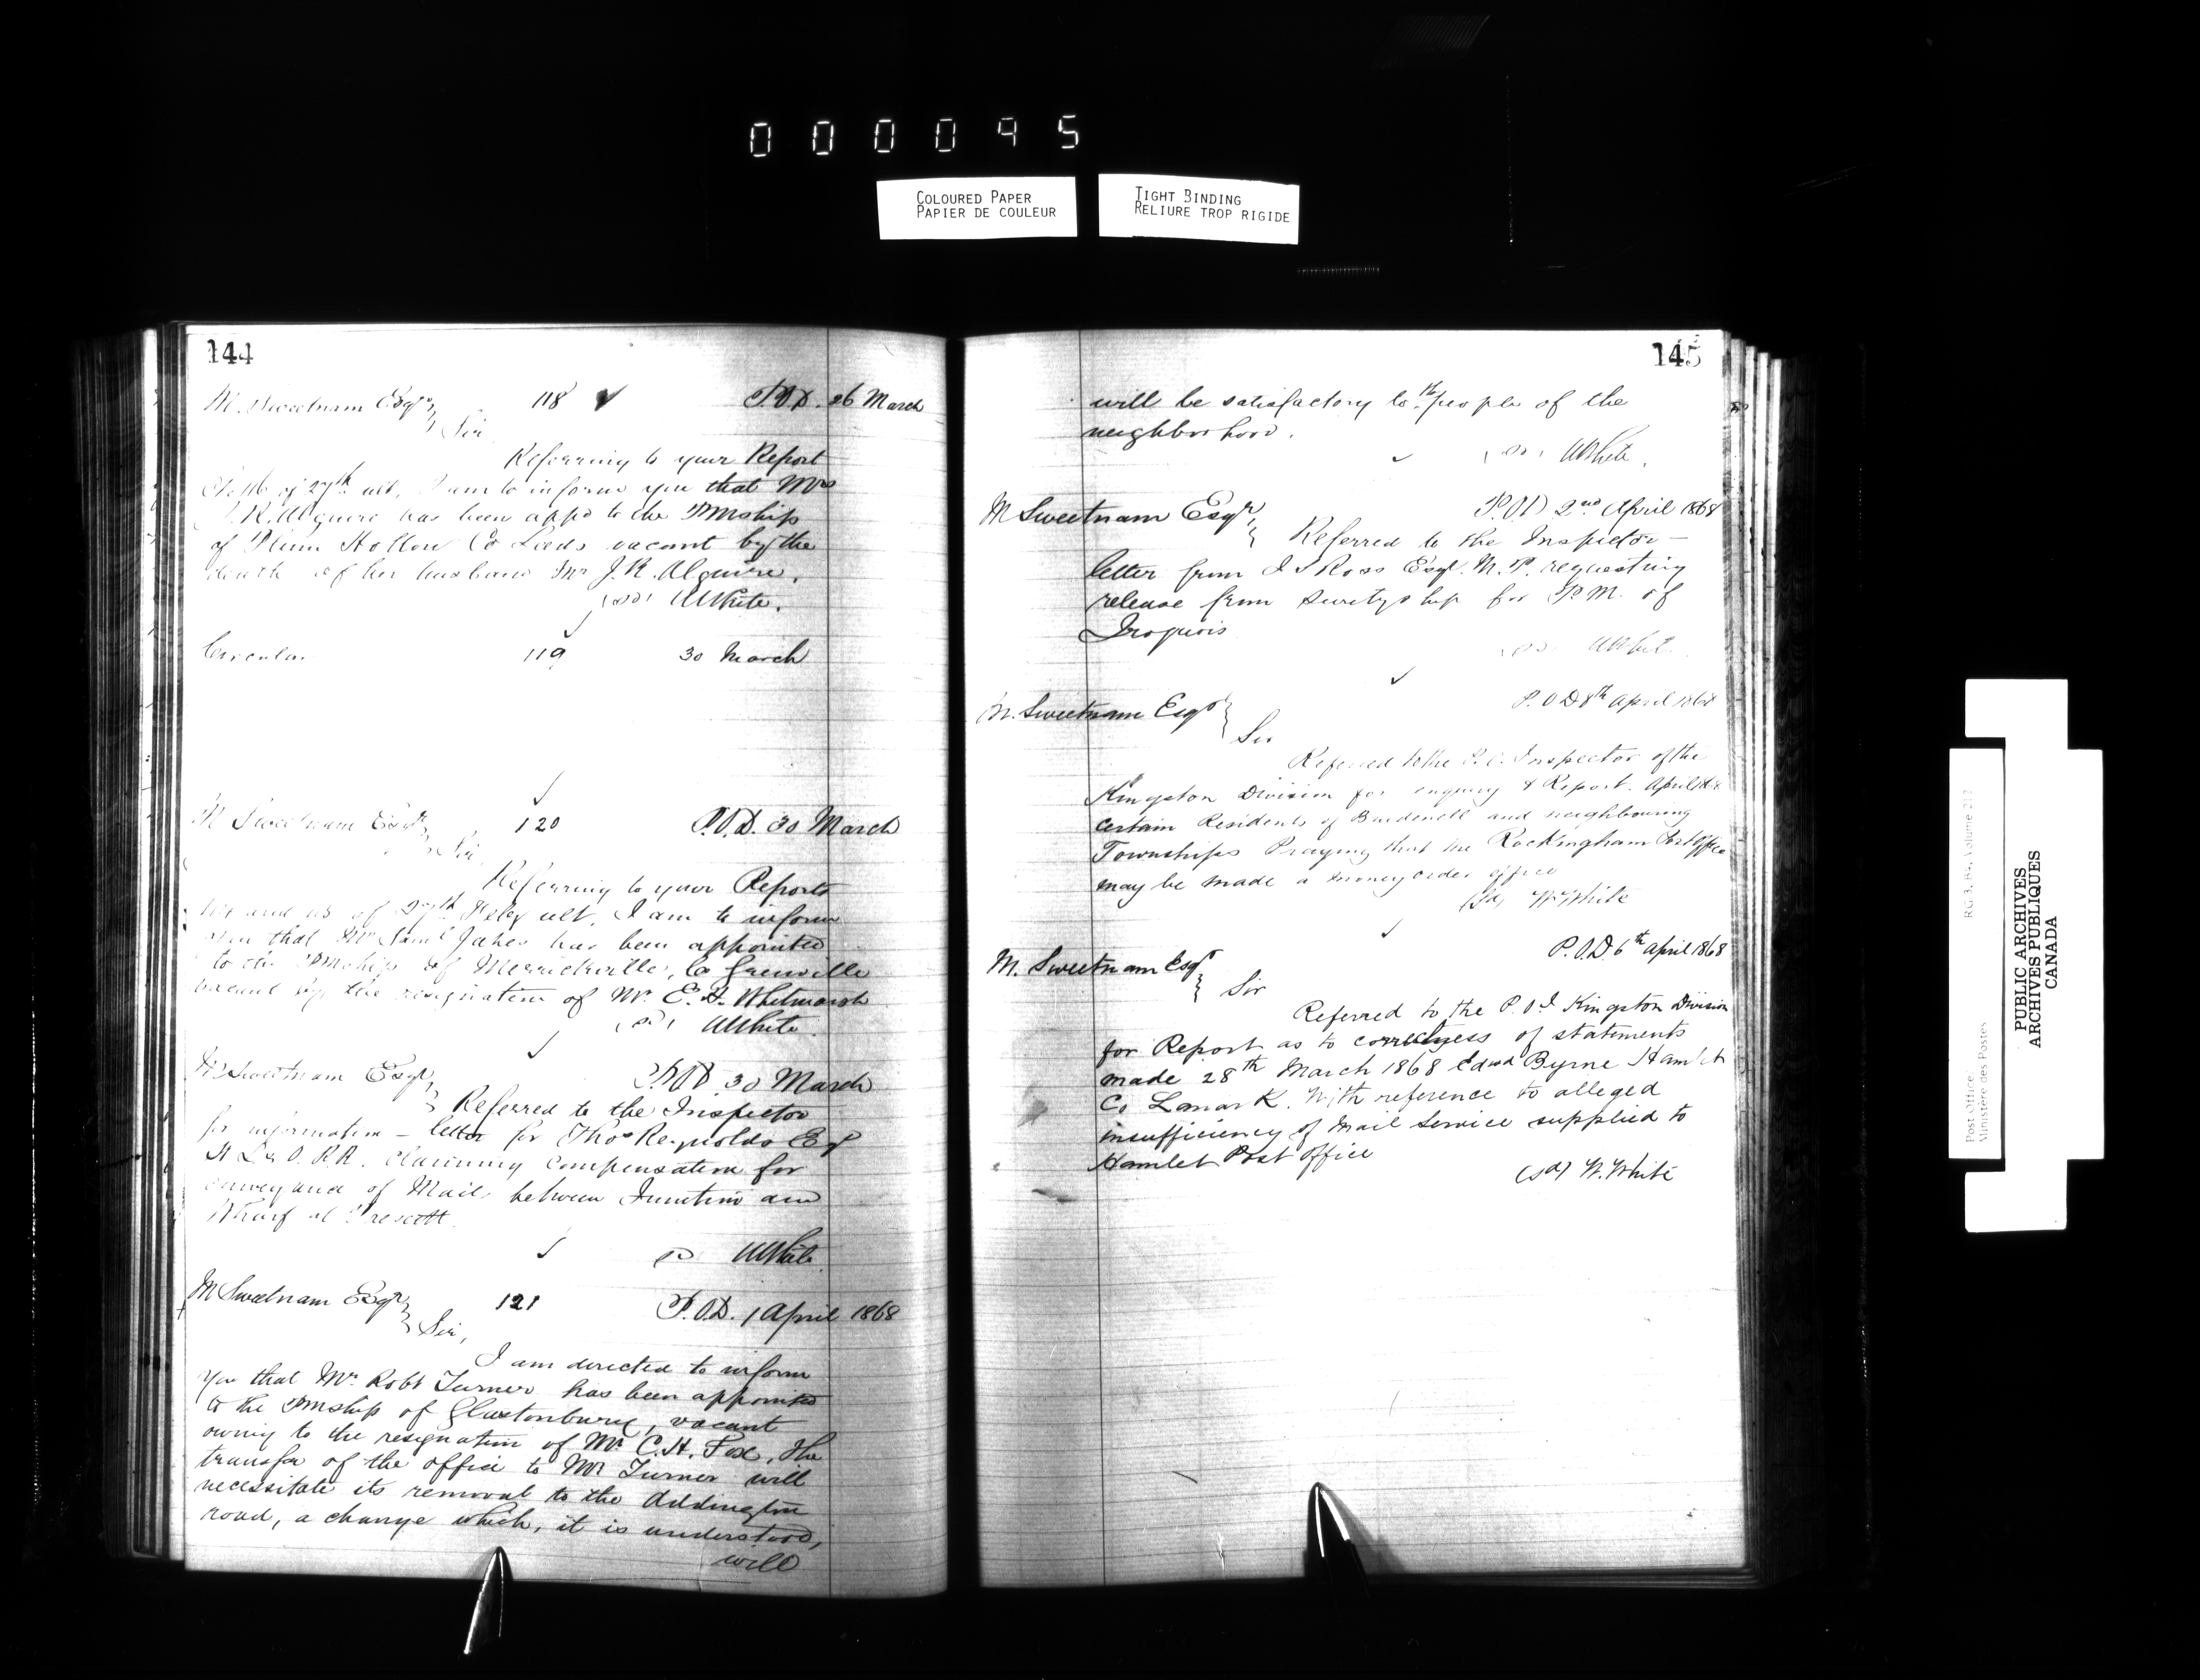 000095
COLOURED PAPER
PAPIER DE COULEUR
TIGHT BINDING
RELIURE TROP RIGIDE
144
M. Sweetnam Esqr 118 P.O.D. 26 March
Sir
Referring to your Report
of 27th ult, I am to inform you that Mrs
Alguire has been appd to the PMship
of Plum Hollow Co Leeds vacant by the
death of her husband Mr J.R. Alguire.
(sd) WWhite.
Circular 119 30 March
M Sweetnam Esqr 120 P.O.D. 30 March
Sir,
Referring to your Reports
and of 27th Feby ult, I am to inform
you that Mr Saml Jakes has been appointed
to the PMship of Merrickville, Co Grenville
vacant by the resignation of Mr. E. H. Whitmarsh
(sd) WWhite.
M Sweetnam Esqr P.O.D. 30 March
Referred to the Inspector
for information – letter for Thos Reynolds Esqr
St L & O. R.R. claiming compensation for
conveyance of Mails between Junction and
Wharf at Prescott.
sd WWhite
M Sweetnam Esqr 121 P.O.D. 1 April 1868
Sir,
I am directed to inform
you that Mr. Robt Turner has been appointed
to the PMship of Glastonbury, vacant
owing to the resignation of Mr. C.H. Fox, the
transfer of the office to Mr Turner will
necessitate its removal to the Addington
road, a change which, it is understood,
will
145
will be satisfactory to the people of the
neighborhood.
(sd) WWhite.
M Sweetnam Esqr P.O.D 2nd April 1868
Referred to the Inspector –
letter from J S Ross Esqr. M.P. requesting
release from suretyship for P.M. of
Iroquois
(sd) WWhite
M. Sweetnam Esqr P.O.D 8th April 1868
Sir
Referred to the P.O. Inspector of the
Kingston Division for enquiry & Report. April
certain Residents of Brudenell and neighbouring
Townships Praying that the Rockingham Post Office
may be made a money order office
(Sd) W. White
M. Sweetnam Esqr P.O.D. 6th April 1868
Sir
Referred to the P.O.I Kingston Division
for Report as to correctness of statements
made 28th March 1868 Edwd Byrne Hamlet
Co Lanark. With reference to alleged
insufficiency of Mail Service supplied to
Hamlet Post Office
(sd) W. White
Post Office/
Ministère des Postes
RG 3, B4, Volume
PUBLIC ARCHIVES
ARCHIVES PUBLIQUES
CANADA